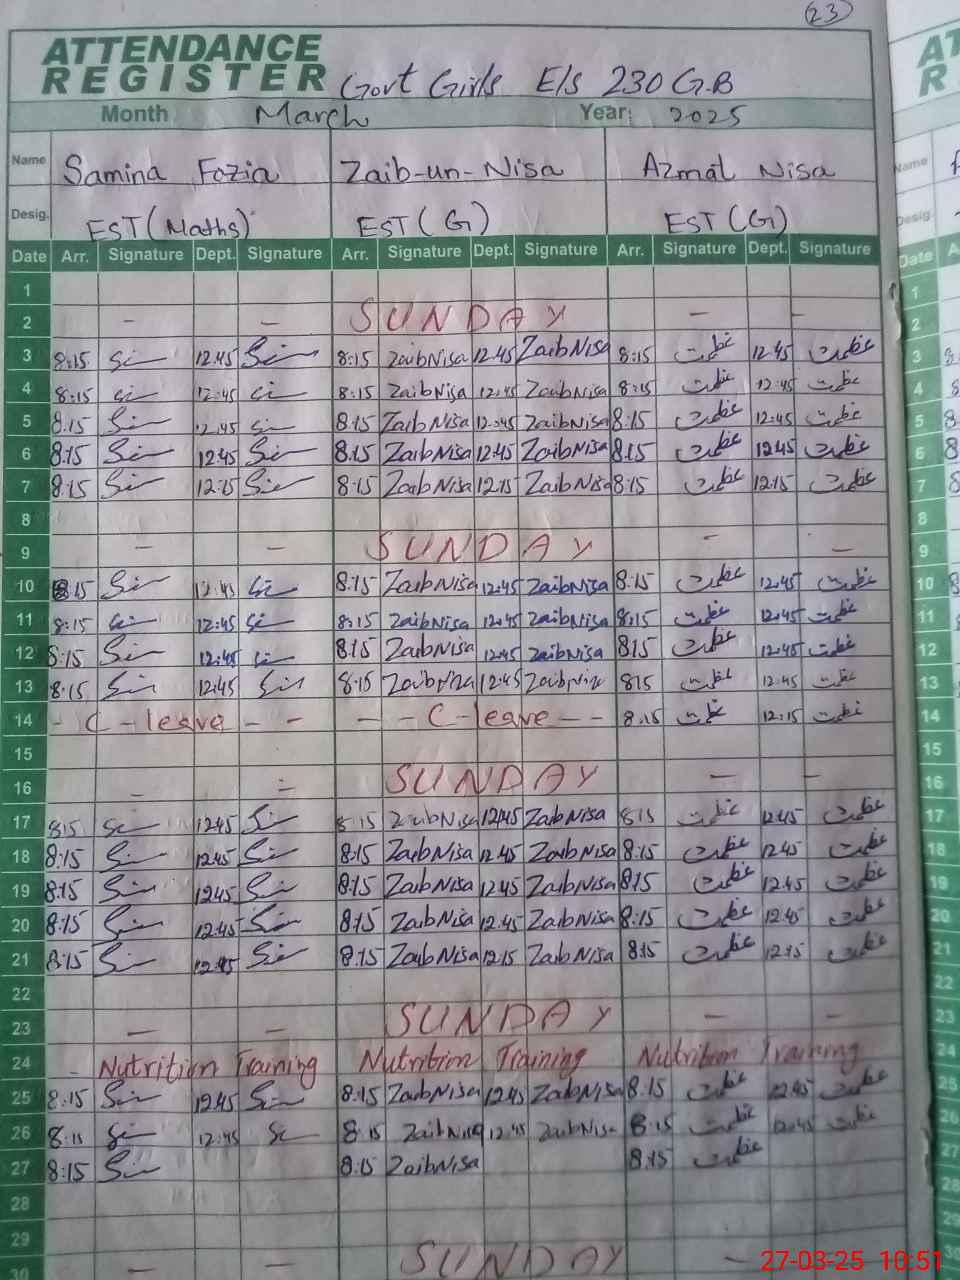 23
ATTENDANCE
REGISTER Govt Girls E/S 230 G.B
Month March Year: 2025
Name Samina Fozia Zaib-un-Nisa Azmat Nisa
Desig. EST (Maths) EST (G) EST (G)
Date Arr. Signature Dept. Signature Arr. Signature Dept. Signature Arr. Signature Dept. Signature
1
2 - - SUNDAY - -
3 8:15 12.45 8:15 ZaibNisa 12.45 ZaibNisa 8:15 عظمت 12.45 عظمت
4 8:15 12:45 8:15 ZaibNisa 12:45 ZaibNisa 8:15 عظمت 12:45 عظمت
5 8:15 12:45 8:15 ZaibNisa 12:45 ZaibNisa 8:15 عظمت 12:45 عظمت
6 8:15 12:45 8:15 ZaibNisa 12:45 ZaibNisa 8:15 عظمت 12:45 عظمت
7 8:15 12:15 8:15 ZaibNisa 12:15 ZaibNisa 8:15 عظمت 12:15 عظمت
8
9 - - SUNDAY - -
10 8:15 12:45 8:15 ZaibNisa 12:45 ZaibNisa 8:15 عظمت 12:45 عظمت
11 8:15 12:45 8:15 ZaibNisa 12:45 ZaibNisa 8:15 عظمت 12:45 عظمت
12 8:15 12:45 8:15 ZaibNisa 12:45 ZaibNisa 8:15 عظمت 12:45 عظمت
13 8:15 12:45 8:15 12:45 815 عظمت 12:45 عظمت
14 - C-leave - - - - C-leave - - 8:15 عظمت 12:15 عظمت
15
16 - - SUNDAY - -
17 815 1245 8:15 ZaibNisa 12:45 ZaibNisa 8:15 عظمت 12:45 عظمت
18 8:15 12.45 8:15 ZaibNisa 12.45 ZaibNisa 8:15 عظمت 12.45 عظمت
19 8:15 1245 8:15 ZaibNisa 12.45 ZaibNisa 8:15 عظمت 12.45 عظمت
20 8:15 12.45 8:15 ZaibNisa 12.45 ZaibNisa 8:15 عظمت 12.45 عظمت
21 8:15 8:15 ZaibNisa 12:15 ZaibNisa 8:15 عظمت 12:15 عظمت
22
23 - - SUNDAY - -
24 - Nutrition Training Nutrition Training Nutrition Training
25 8:15 12.45 8:15 ZaibNisa 12.45 ZaibNisa 8:15 عظمت 12.45 عظمت
26 8:15 12:45 8:15 ZaibNisa 12:45 ZaibNisa 8:15 عظمت 12:45 عظمت
27 8:15 8:15 ZaibNisa 8:15 عظمت
28
29
30 - - SUNDAY -
27-03-25 10:51